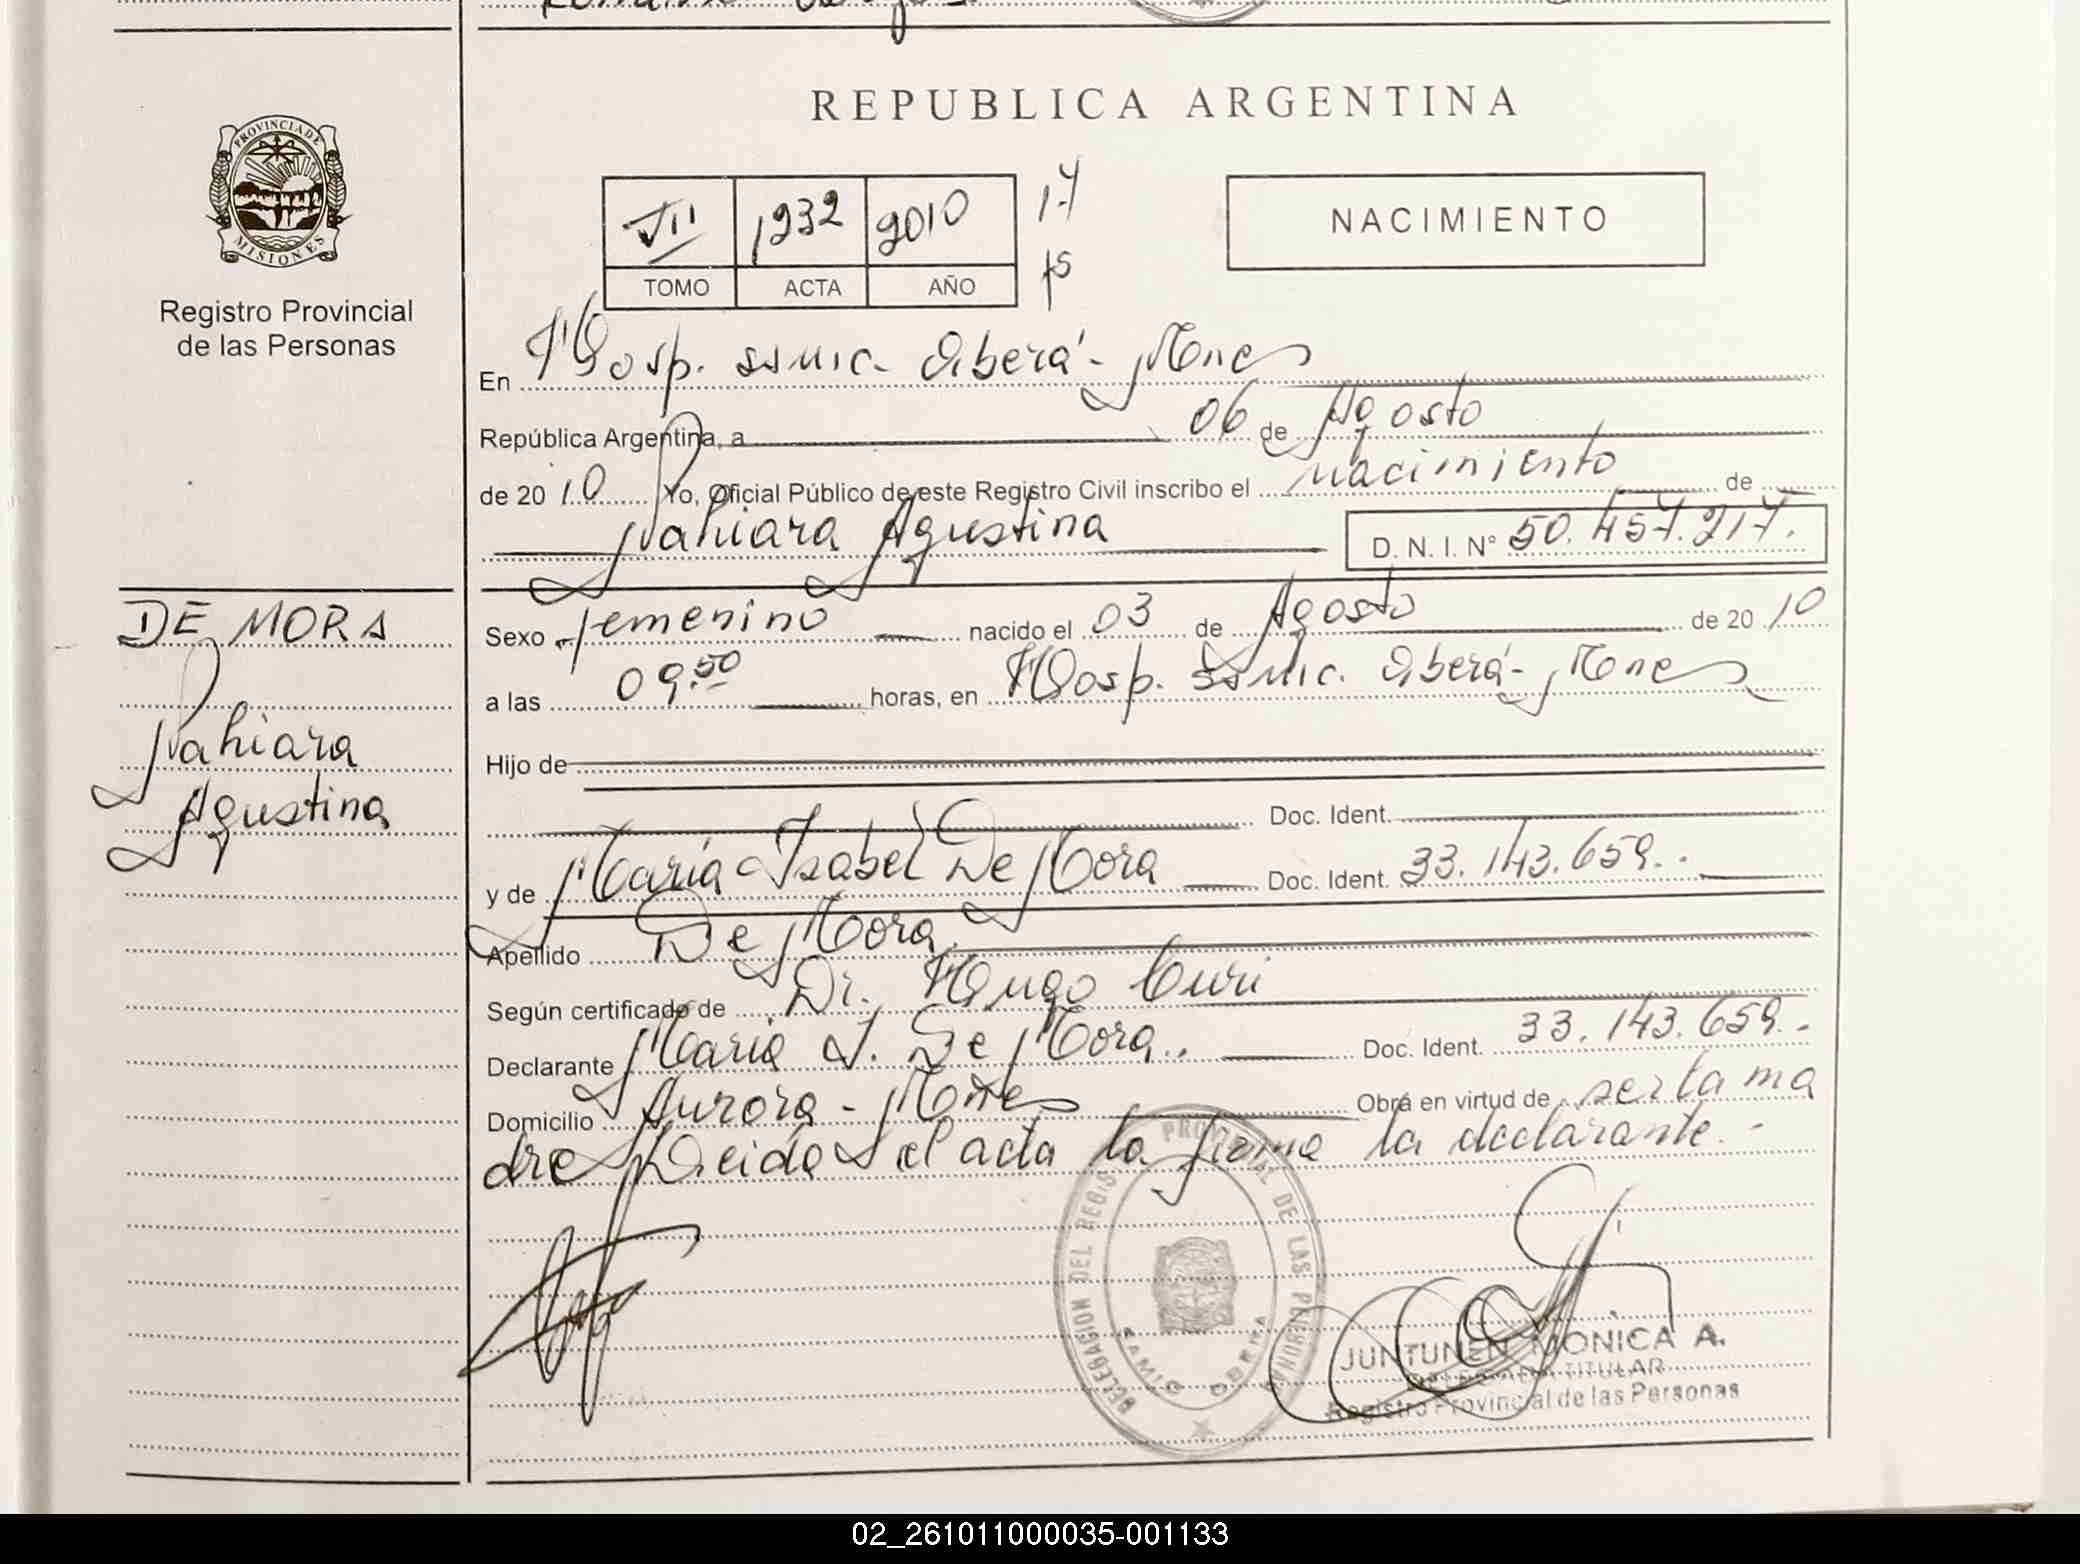 REPUBLICA ARGENTINA
PROVINCIA DE
MISIONES
Registro Provincial
de las Personas
VII 1232 2010 17
TOMO ACTA AÑO 15
NACIMIENTO
En Hosp. SSMIC. Oberá - Mnes
República Argentina, a 06 de Agosto
de 20 10 Yo, Oficial Público de este Registro Civil inscribo el nacimiento de
Nahiara Agustina D. N. I. N° 50.457.217.
DE MORA
Nahiara
Agustina
Sexo femenino nacido el 03 de Agosto de 20 10
a las 09.50 horas, en Hosp. SSMIC. Oberá - Mnes
Hijo de
Doc. Ident.
y de María Isabel De Mora Doc. Ident. 33.143.659.
Apellido De Mora.
Según certificado de Dr. Hugo Curi
Declarante Maria I. De Mora. Doc. Ident. 33.143.659.
Domicilio Aurora - Mnes Obra en virtud de ser la ma
dre Leida el acta la firma la declarante.-
DELEGACION DEL REGIS. PROVINCIAL DE LAS PERSONAS
SAMIC OBERA
JUNTUNEN MONICA A.
TITULAR
Registro Provincial de las Personas
02_261011000035-001133